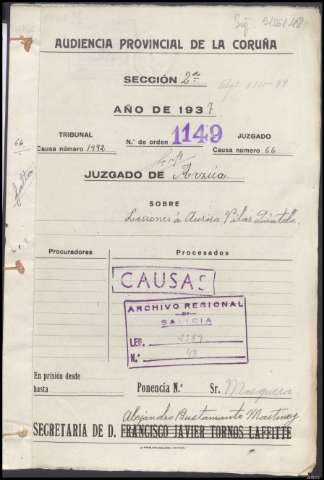 AUDIENCIA PROVINCIAL DE LA CORUÑA
SECCIÓN 2ª
AÑO DE 1937
TRIBUNAL
N.º de orden 1149
JUZGADO
Causa número 1492
Causa número 66
66
JUZGADO DE Arzúa
SOBRE
Lesiones á Aurora Pilar
Procuradores
Procesados
CAUSAS
ARCHIVO REGIONAL
DE
GALICIA
LEG.
N.º
En prisión desde
hasta
Ponencia N.º
Sr. Mosquera
Alejandro Bustamante Martínez
SECRETARIA DE D. FRANCISCO JAVIER TORNOS LAFFITTE